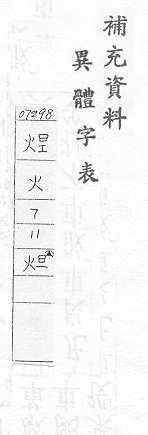 補充資料
異體字表
07298
火
7
11
炟